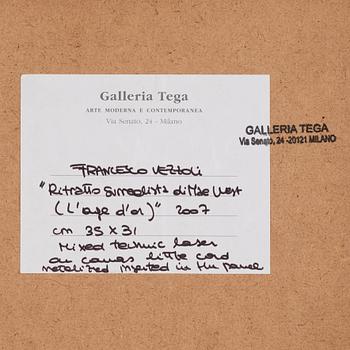 Galleria Tega
ARTE MODERNA E CONTEMPORANEA
Via Senato, 24 - Milano
GALLERIA TEGA
Via Senato, 24 -20121 MILANO
FRANCESCO VEZZOLI
"Ritratto Surrealista di Mae West
(L'age d'or)" 2007
cm 35 x 31
Mixed technic laser
on canvas little cord
metalized inserted in the panel